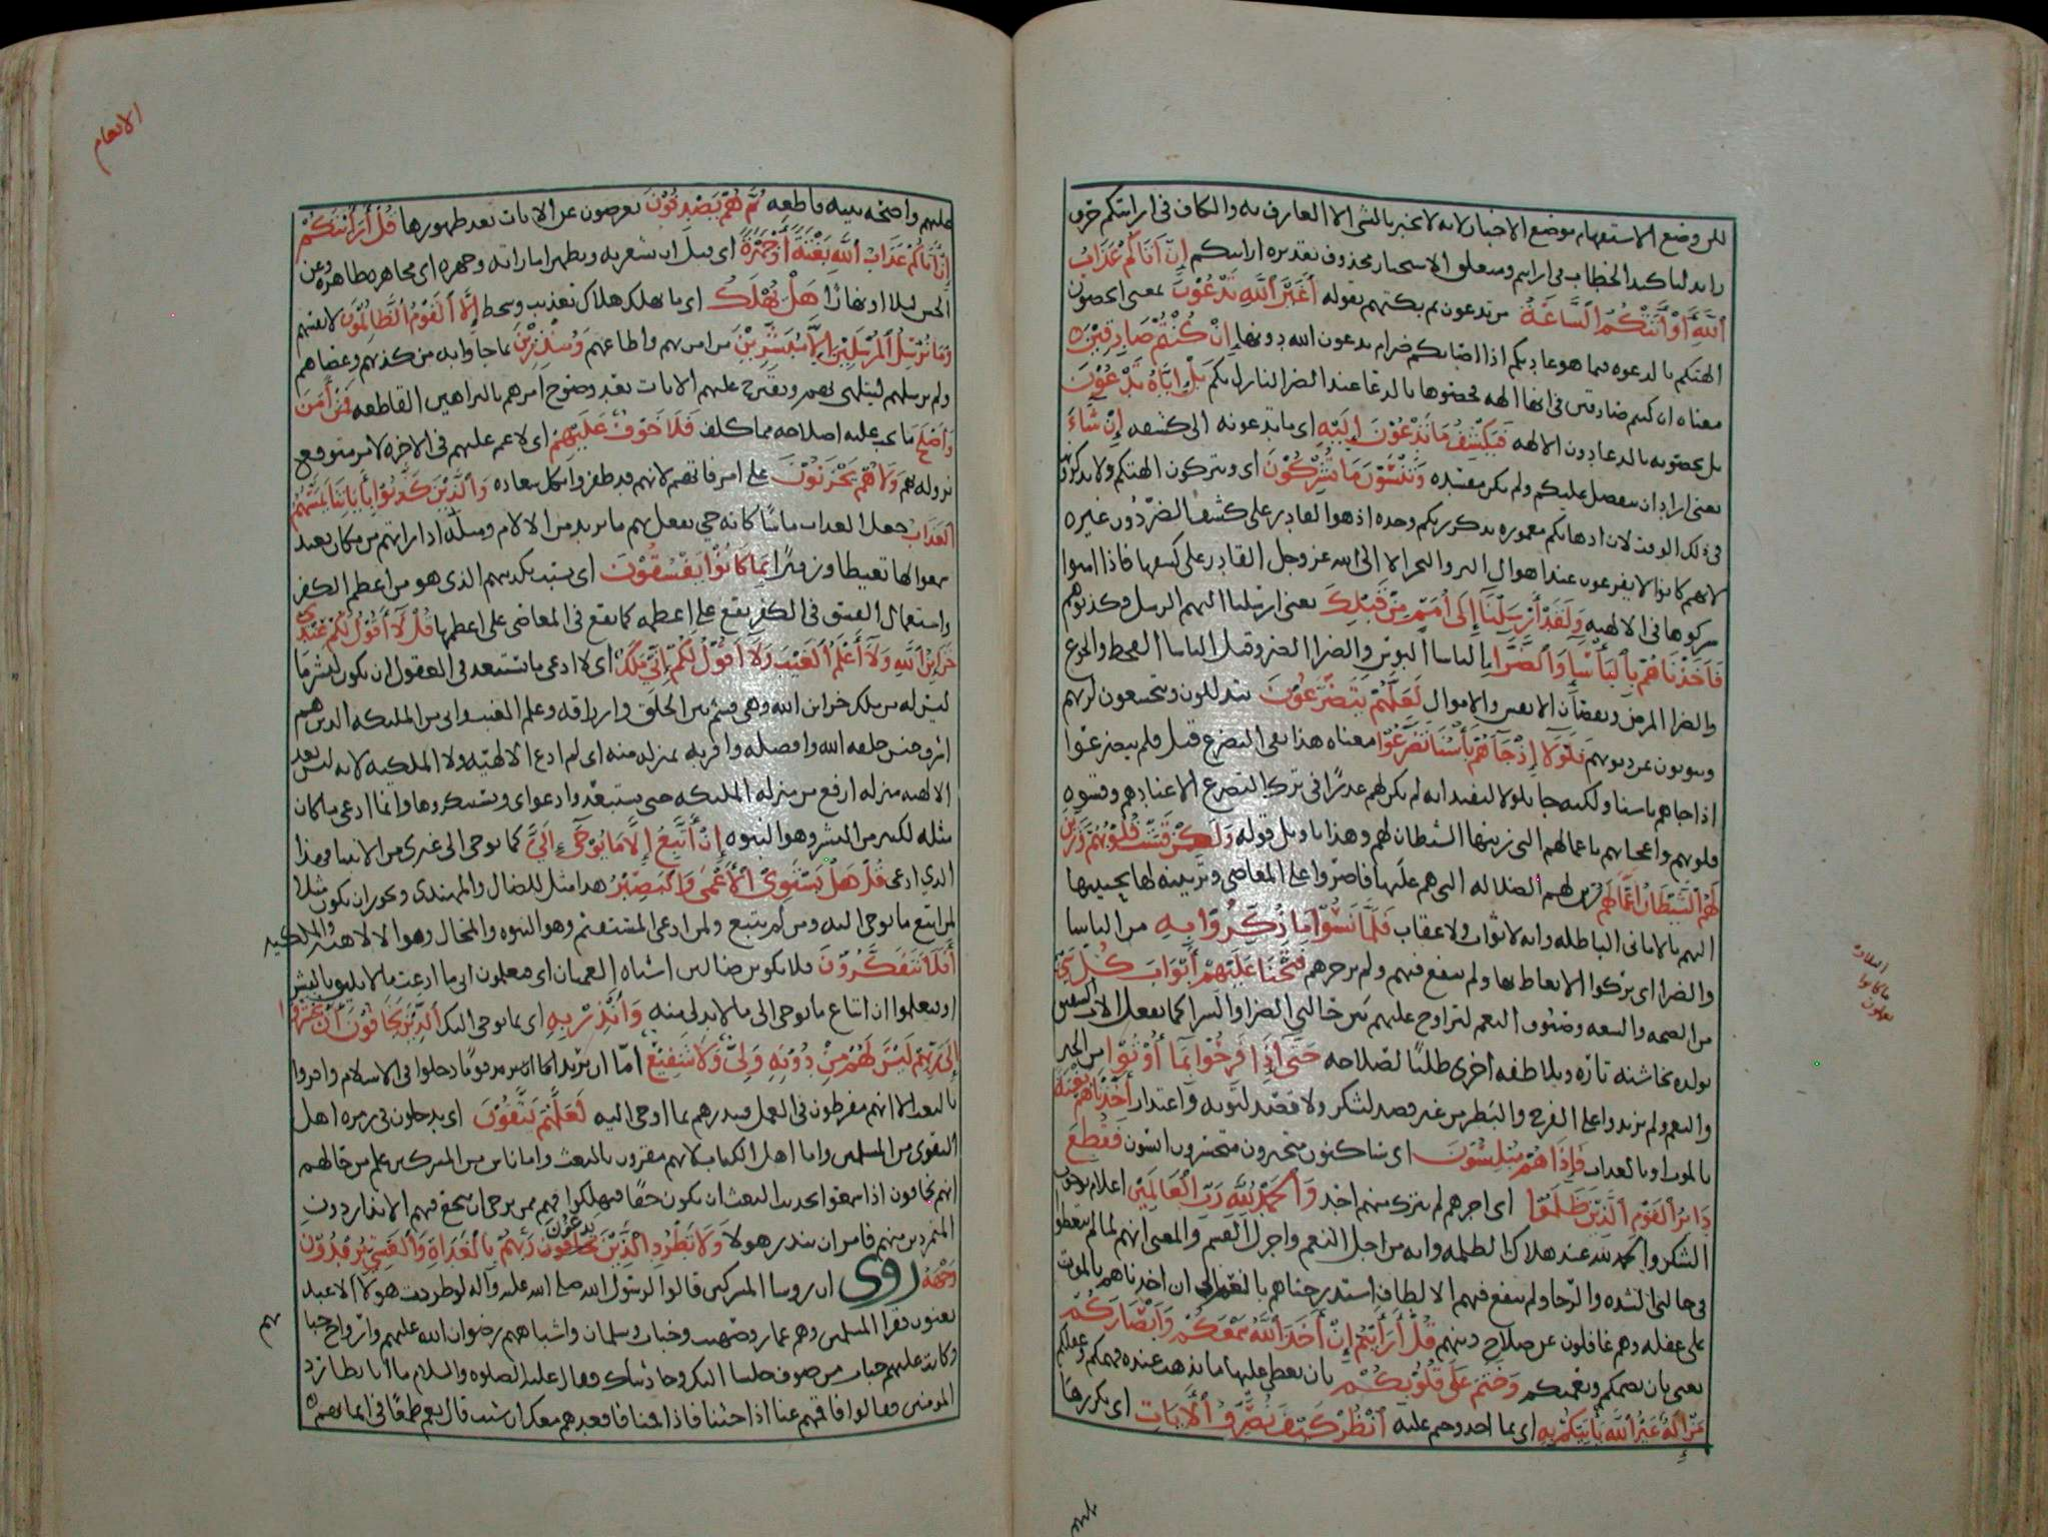 لكن وضع الاستفهام موضع الاخبار لانه لا يخبر بالشي الا العارف به والكاف في ارايتكم حرف
زايد لتاكيد الخطاب في ارايتم ومتعلق الاستخبار محذوف تقديره ارايتكم إِنْ أَتَاكُمْ عَذَابُ
اللَّهِ أَوْ أَتَتْكُمُ السَّاعَةُ من تدعون ثم بكتهم بقوله أَغَيْرَ اللَّهِ تَدْعُونَ بمعنى اتخصون
الهتكم بالدعوه فيما هو عادتكم اذا اصابكم ضر ام تدعون الله دونها إِنْ كُنْتُمْ صَادِقِينَ
معناه ان كنتم صادقين في انها الهه فخصوها بالدعا عند الضر النازل بكم بَلْ إِيَّاهُ تَدْعُونَ
بل تخصونه بالدعا دون الالهه فَيَكْشِفُ مَا تَدْعُونَ إِلَيْهِ اي ما تدعونه الى كشفه إِنْ شَاءَ
يعني اراد ان يتفضل عليكم ولم يكن مفسده وَتَنْسَوْنَ مَا تُشْرِكُونَ اي وتتركون الهتكم ولا تذكرونها
في ذلك الوقت لان اذهانكم مغموره بذكر ربكم وحده اذ هو القادر على كشف الضر دون غيره
لانهم كانوا لا يفزعون عند اهوال البر والبحر الا الى الله عز وجل القادر على كشفها فاذا امنوا
شركوها في الالهيه وَلَقَدْ أَرْسَلْنَا إِلَى أُمَمٍ مِنْ قَبْلِكَ يعني ارسلنا اليهم الرسل وكذبوهم
فَأَخَذْنَاهُمْ بِالْبَأْسَاءِ وَالضَّرَّاءِ الباسا البوس والضرا الضر وقيل الباسا القحط والجوع
والضرا المرض ونقصان الانفس والاموال لَعَلَّهُمْ يَتَضَرَّعُونَ يتذللون ويتخشعون لربهم
ويتوبون عن ذنوبهم فَلَوْلَا إِذْ جَاءَهُمْ بَأْسُنَا تَضَرَّعُوا معناه هذا نفي التضرع قيل فلم يتضرعوا
اذ جاهم باسنا ولكنه جا بلولا ليفيد انه لم يكن لهم عذرا في ترك التضرع الا عنادهم وقسوه
قلوبهم واعجابهم باعمالهم التي زينها الشيطان لهم وهذا تاويل قوله وَلَكِنْ قَسَتْ قُلُوبُهُمْ وَزَيَّنَ
لَهُمُ الشَّيْطَانُ أَعْمَالَهُمْ زين لهم الضلاله التي هم عليها فاصروا على المعاصي وتزيينه لها تحبيبها
اليهم بالاماني الباطله وانه لا ثواب ولا عقاب فَلَمَّا نَسُوا مَا ذُكِّرُوا بِهِ من الباسا
والضرا اي تركوا الاتعاظ بها ولم ينفع فيهم ولم يزجرهم فَتَحْنَا عَلَيْهِمْ أَبْوَابَ كُلِّ شَيْءٍ
من الصحه والسعه وصنوف النعم لتراوح عليهم بين حالتي الضرا والسرا كما يفعل الاب الشفيق
بولده يخاشنه تاره ويلاطفه اخرى طلبا لصلاحه حَتَّى إِذَا فَرِحُوا بِمَا أُوتُوا من الخير
والنعم ولم يزيدوا على الفرح والبطر من غير قصد لشكر ولا قصد لتوبه واعتذار أَخَذْنَاهُمْ بَغْتَةً
بالموت او بالعذاب فَإِذَا هُمْ مُبْلِسُونَ اي ساكتون متحيرون متحسرون ايسون فَقُطِعَ
دَابِرُ الْقَوْمِ الَّذِينَ ظَلَمُوا اي اخرهم لم يترك منهم احد وَالْحَمْدُ لِلَّهِ رَبِّ الْعَالَمِينَ اعلام بوجوب
الشكر والحمد لله عند هلاك الظلمه وانه من اجل النعم واجزل القسم والمعنى انهم لما لم يتعظوا
في حالتي الشده والرخا ولم ينفع فيهم الالطاف استدرجناهم بالنعم الى ان اخذناهم بالموت
على غفله وهم غافلون عن صلاح دينهم قُلْ أَرَأَيْتُمْ إِنْ أَخَذَ اللَّهُ سَمْعَكُمْ وَأَبْصَارَكُمْ
يعني بان يصمكم ويعميكم وَخَتَمَ عَلَى قُلُوبِكُمْ بان يغطي عليها ما يذهب عنده فهمكم وعقلكم
مَنْ إِلَهٌ غَيْرُ اللَّهِ يَأْتِيكُمْ بِهِ اي بما اخذ وختم عليه انْظُرْ كَيْفَ نُصَرِّفُ الْآيَاتِ اي نكررها
عليهم
الانعام
عليهم واضحه بينه قاطعه ثُمَّ هُمْ يَصْدِفُونَ يعرضون عن الايات بعد ظهورها قُلْ أَرَأَيْتَكُمْ
إِنْ أَتَاكُمْ عَذَابُ اللَّهِ بَغْتَةً أَوْ جَهْرَةً اي قبل ان يشعر به ويظهر اماراته وجهره اي مجاهره مظاهره وعن
الحسن ليلا او نهارا هَلْ يُهْلَكُ اي ما يهلك هلاك تعذيب وسخط إِلَّا الْقَوْمُ الظَّالِمُونَ لانفسهم
وَمَا نُرْسِلُ الْمُرْسَلِينَ إِلَّا مُبَشِّرِينَ من امن بهم واطاعهم وَمُنْذِرِينَ بما جاوا به من كذبهم وعصاهم
ولم نرسلهم ليتلهى بهم ويقترح عليهم الايات بعد وضوح امرهم بالبراهين القاطعه فَمَنْ آمَنَ
وَأَصْلَحَ ما يجب عليه اصلاحه مما كلف فَلَا خَوْفٌ عَلَيْهِمْ اي لا غم عليهم في الاخره لامر متوقع
نزوله بهم وَلَا هُمْ يَحْزَنُونَ على امر فاتهم لانهم قد ظفروا بكل سعاده وَالَّذِينَ كَذَّبُوا بِآيَاتِنَا يَمَسُّهُمُ
الْعَذَابُ جعل العذاب ماسا كانه حي يفعل بهم ما يريد من الالام ومثله اذا راتهم من مكان بعيد
سمعوا لها تغيظا وزفيرا بِمَا كَانُوا يَفْسُقُونَ اي بسبب تكذيبهم الذي هو من اعظم الكفر
واستعمال الفسق في الكفر يقع على اعظمه كما يقع في المعاصي على اعظمها قُلْ لَا أَقُولُ لَكُمْ عِنْدِي
خَزَائِنُ اللَّهِ وَلَا أَعْلَمُ الْغَيْبَ وَلَا أَقُولُ لَكُمْ إِنِّي مَلَكٌ اي لا ادعي ما يستبعد في العقول ان يكون لبشر ما
ليس له من ملك خزاين الله وهي قسمه بين الخلق وارزاقه وعلم الغيب واني من المليكه الذين هم
اشرف جنس خلقه الله وافضله واقربه بمنزله منه اي لم ادع الالهيه ولا الملكيه لانه ليس بعد
الالهيه منزله ارفع من منزله المليكه حتى يستبعدوا دعواي ويستنكروها وانما ادعي ما كان
مثله لكثير من البشر وهو النبوه إِنْ أَتَّبِعُ إِلَّا مَا يُوحَى إِلَيَّ كما يوحى الى غيري من الانبيا فهذا
الذي ادعي قُلْ هَلْ يَسْتَوِي الْأَعْمَى وَالْبَصِيرُ هذا مثل للضال والمهتدي ويجوز ان يكون مثلا
لمن اتبع ما يوحى اليه ومن لم يتبع ولمن ادعى المستقيم وهو النبوه والمحال وهو الالاهيه والملكيه
أَفَلَا تَتَفَكَّرُونَ فلا تكونوا ضالين اشباه العميان اي فتعلمون اني ما ادعيت ما لا يليق بالبشر
او تعلموا ان اتباع ما يوحى الي ما لا بد لي منه وَأَنْذِرْ بِهِ اي بما يوحى اليك الَّذِينَ يَخَافُونَ أَنْ يُحْشَرُوا
إِلَى رَبِّهِمْ لَيْسَ لَهُمْ مِنْ دُونِهِ وَلِيٌّ وَلَا شَفِيعٌ اما ان يريد قوما دخلوا في الاسلام واقروا
بالبعث الا انهم مفرطون في العمل فينذرهم بما اوحي اليه لَعَلَّهُمْ يَتَّقُونَ اي يدخلون في زمره اهل
التقوى من المسلمين واما اهل الكتاب لانهم مقرون بالبعث واما ناس من المشركين علم من حالهم
انهم يخافون اذا سمعوا بحديث البعث ان يكون حقا فيهلكوا فهم ممن يرجى ان ينجع فيهم الانذار دون
المتمردين منهم فامر ان ينذر هولا وَلَا تَطْرُدِ الَّذِينَ يَدْعُونَ رَبَّهُمْ بِالْغَدَاةِ وَالْعَشِيِّ يُرِيدُونَ
وَجْهَهُ روي ان روسا المشركين قالوا لرسول الله صلى الله عليه وآله لو طردت هولا الاعبد
يعنون فقرا المسلمين وهم عمار وصهيب وخباب وسلمان واشباههم رضوان الله عليهم وارواح جبابهم
وكانت عليهم جباب من صوف جلسنا اليك وحادثناك فقال عليه الصلوه والسلام ما انا بطارد
المومنين فقالوا فاقمهم عنا اذا جئنا فاذا قمنا فاقعدهم معك ان شيت قال نعم طمعا في ايمانهم